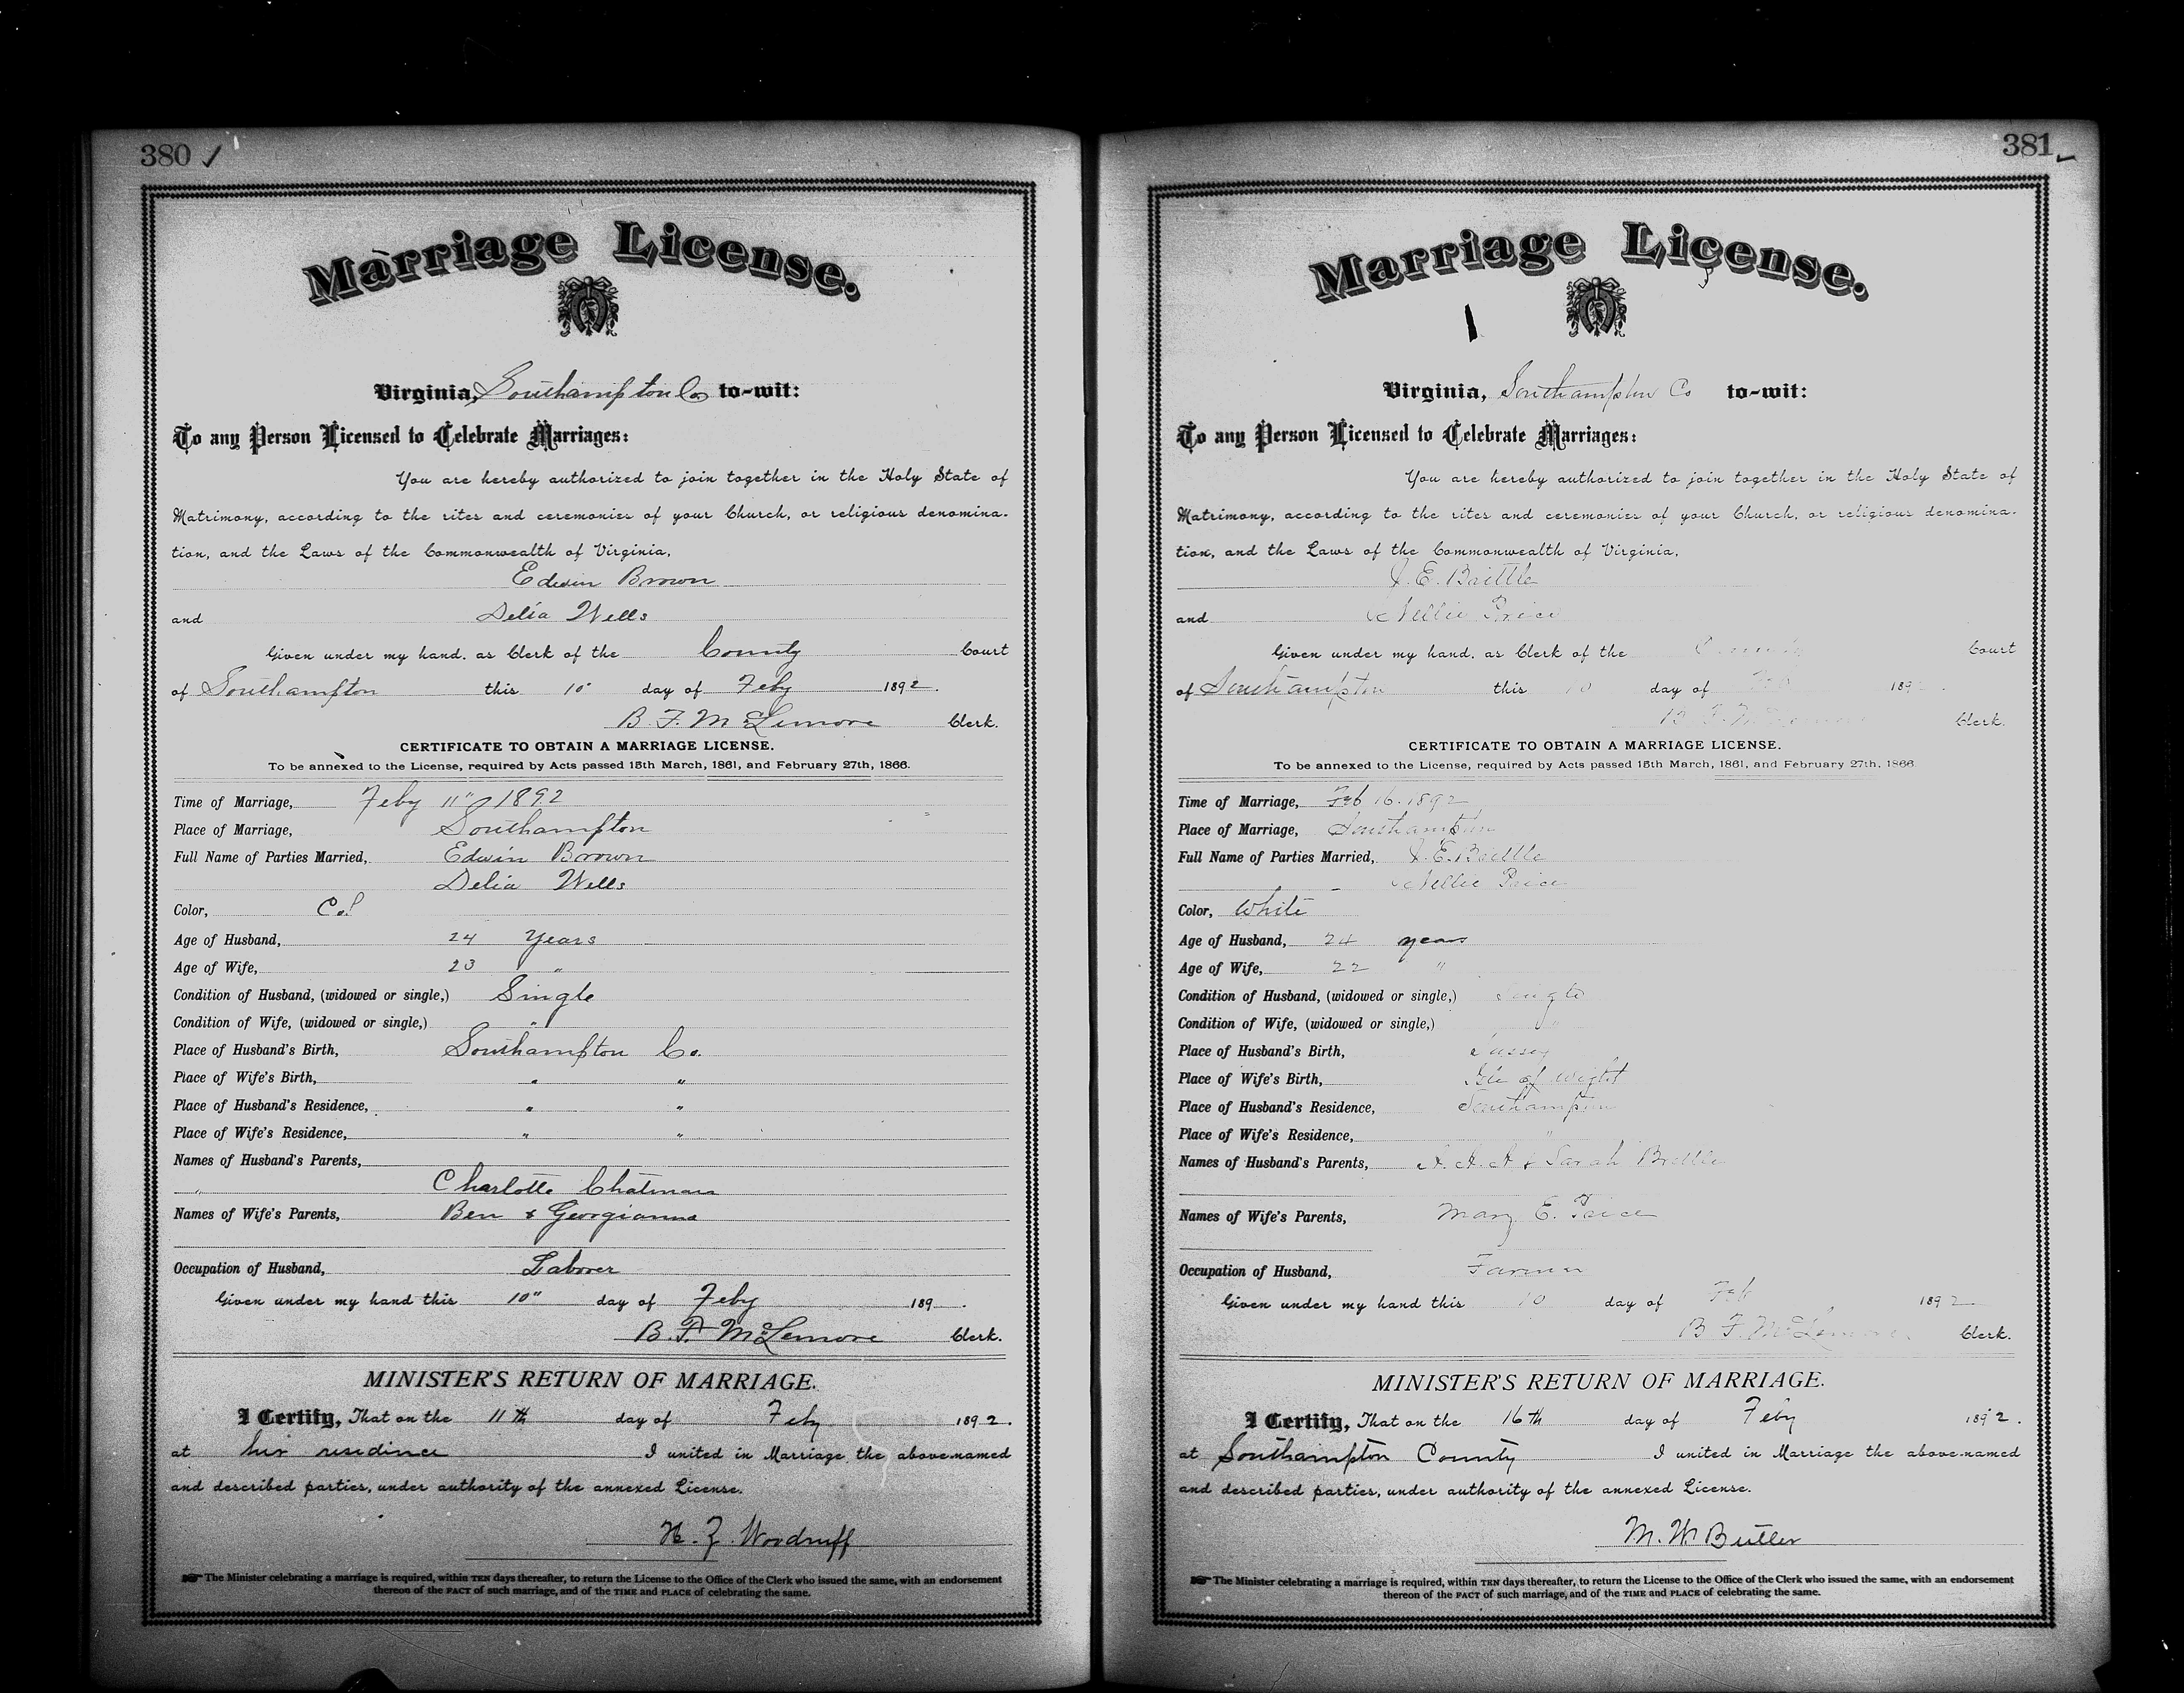 380
Marriage License.
Virginia, Southampton Co to-wit:
To any Person Licensed to Celebrate Marriages:
You are hereby authorized to join together in the Holy State of
Matrimony, according to the rites and ceremonies of your Church, or religious denomina-
tion, and the Laws of the Commonwealth of Virginia,
Edwin Brown
and Delia Wells
Given under my hand, as Clerk of the County Court
of Southampton this 10" day of Feby 1892.
B. F. McLemore Clerk.
CERTIFICATE TO OBTAIN A MARRIAGE LICENSE.
To be annexed to the License, required by Acts passed 15th March, 1861, and February 27th, 1866.
Time of Marriage, Feby 11" 1892
Place of Marriage, Southampton
Full Name of Parties Married, Edwin Brown
Delia Wells
Color, Col
Age of Husband, 24 Years
Age of Wife, 23 "
Condition of Husband, (widowed or single,) Single
Condition of Wife, (widowed or single,) "
Place of Husband's Birth, Southampton Co.
Place of Wife's Birth, " "
Place of Husband's Residence, " "
Place of Wife's Residence, " "
Names of Husband's Parents,
Charlotte Chatman
Names of Wife's Parents, Ben & Georgianna
Occupation of Husband, Laborer
Given under my hand this 10" day of Feby 189 .
B. F. McLemore Clerk.
MINISTER'S RETURN OF MARRIAGE.
I Certify, That on the 11th day of Feby 1892.
at his residence I united in Marriage the above-named
and described parties, under authority of the annexed License.
Woodruff
The Minister celebrating a marriage is required, within TEN days thereafter, to return the License to the Office of the Clerk who issued the same, with an endorsement
thereon of the FACT of such marriage, and of the TIME and PLACE of celebrating the same.
381
Marriage License.
Virginia, Southampton Co to-wit:
To any Person Licensed to Celebrate Marriages:
You are hereby authorized to join together in the Holy State of
Matrimony, according to the rites and ceremonies of your Church, or religious denomina-
tion, and the Laws of the Commonwealth of Virginia,
J. E. Brittle
and Nellie Price
Given under my hand, as Clerk of the County Court
of Southampton this 10 day of Feb 189
B F McLemore Clerk.
CERTIFICATE TO OBTAIN A MARRIAGE LICENSE.
To be annexed to the License, required by Acts passed 15th March, 1861, and February 27th, 1866.
Time of Marriage, Feb 16. 1892
Place of Marriage, Southampton
Full Name of Parties Married, J. E. Brittle
Nellie Price
Color, White
Age of Husband, 24 years
Age of Wife, 22 "
Condition of Husband, (widowed or single,) Single
Condition of Wife, (widowed or single,) "
Place of Husband's Birth, Sussex
Place of Wife's Birth, Isle of Wight
Place of Husband's Residence, Southampton
Place of Wife's Residence, "
Names of Husband's Parents, & Sarah Brittle
Names of Wife's Parents, Mary E. Price
Occupation of Husband, Farmer
Given under my hand this 10 day of Feb 1892
B F McLemore Clerk.
MINISTER'S RETURN OF MARRIAGE.
I Certify, That on the 16th day of Feby 1892.
at Southampton County I united in Marriage the above-named
and described parties, under authority of the annexed License.
M. W. Butler
The Minister celebrating a marriage is required, within TEN days thereafter, to return the License to the Office of the Clerk who issued the same, with an endorsement
thereon of the FACT of such marriage, and of the TIME and PLACE of celebrating the same.